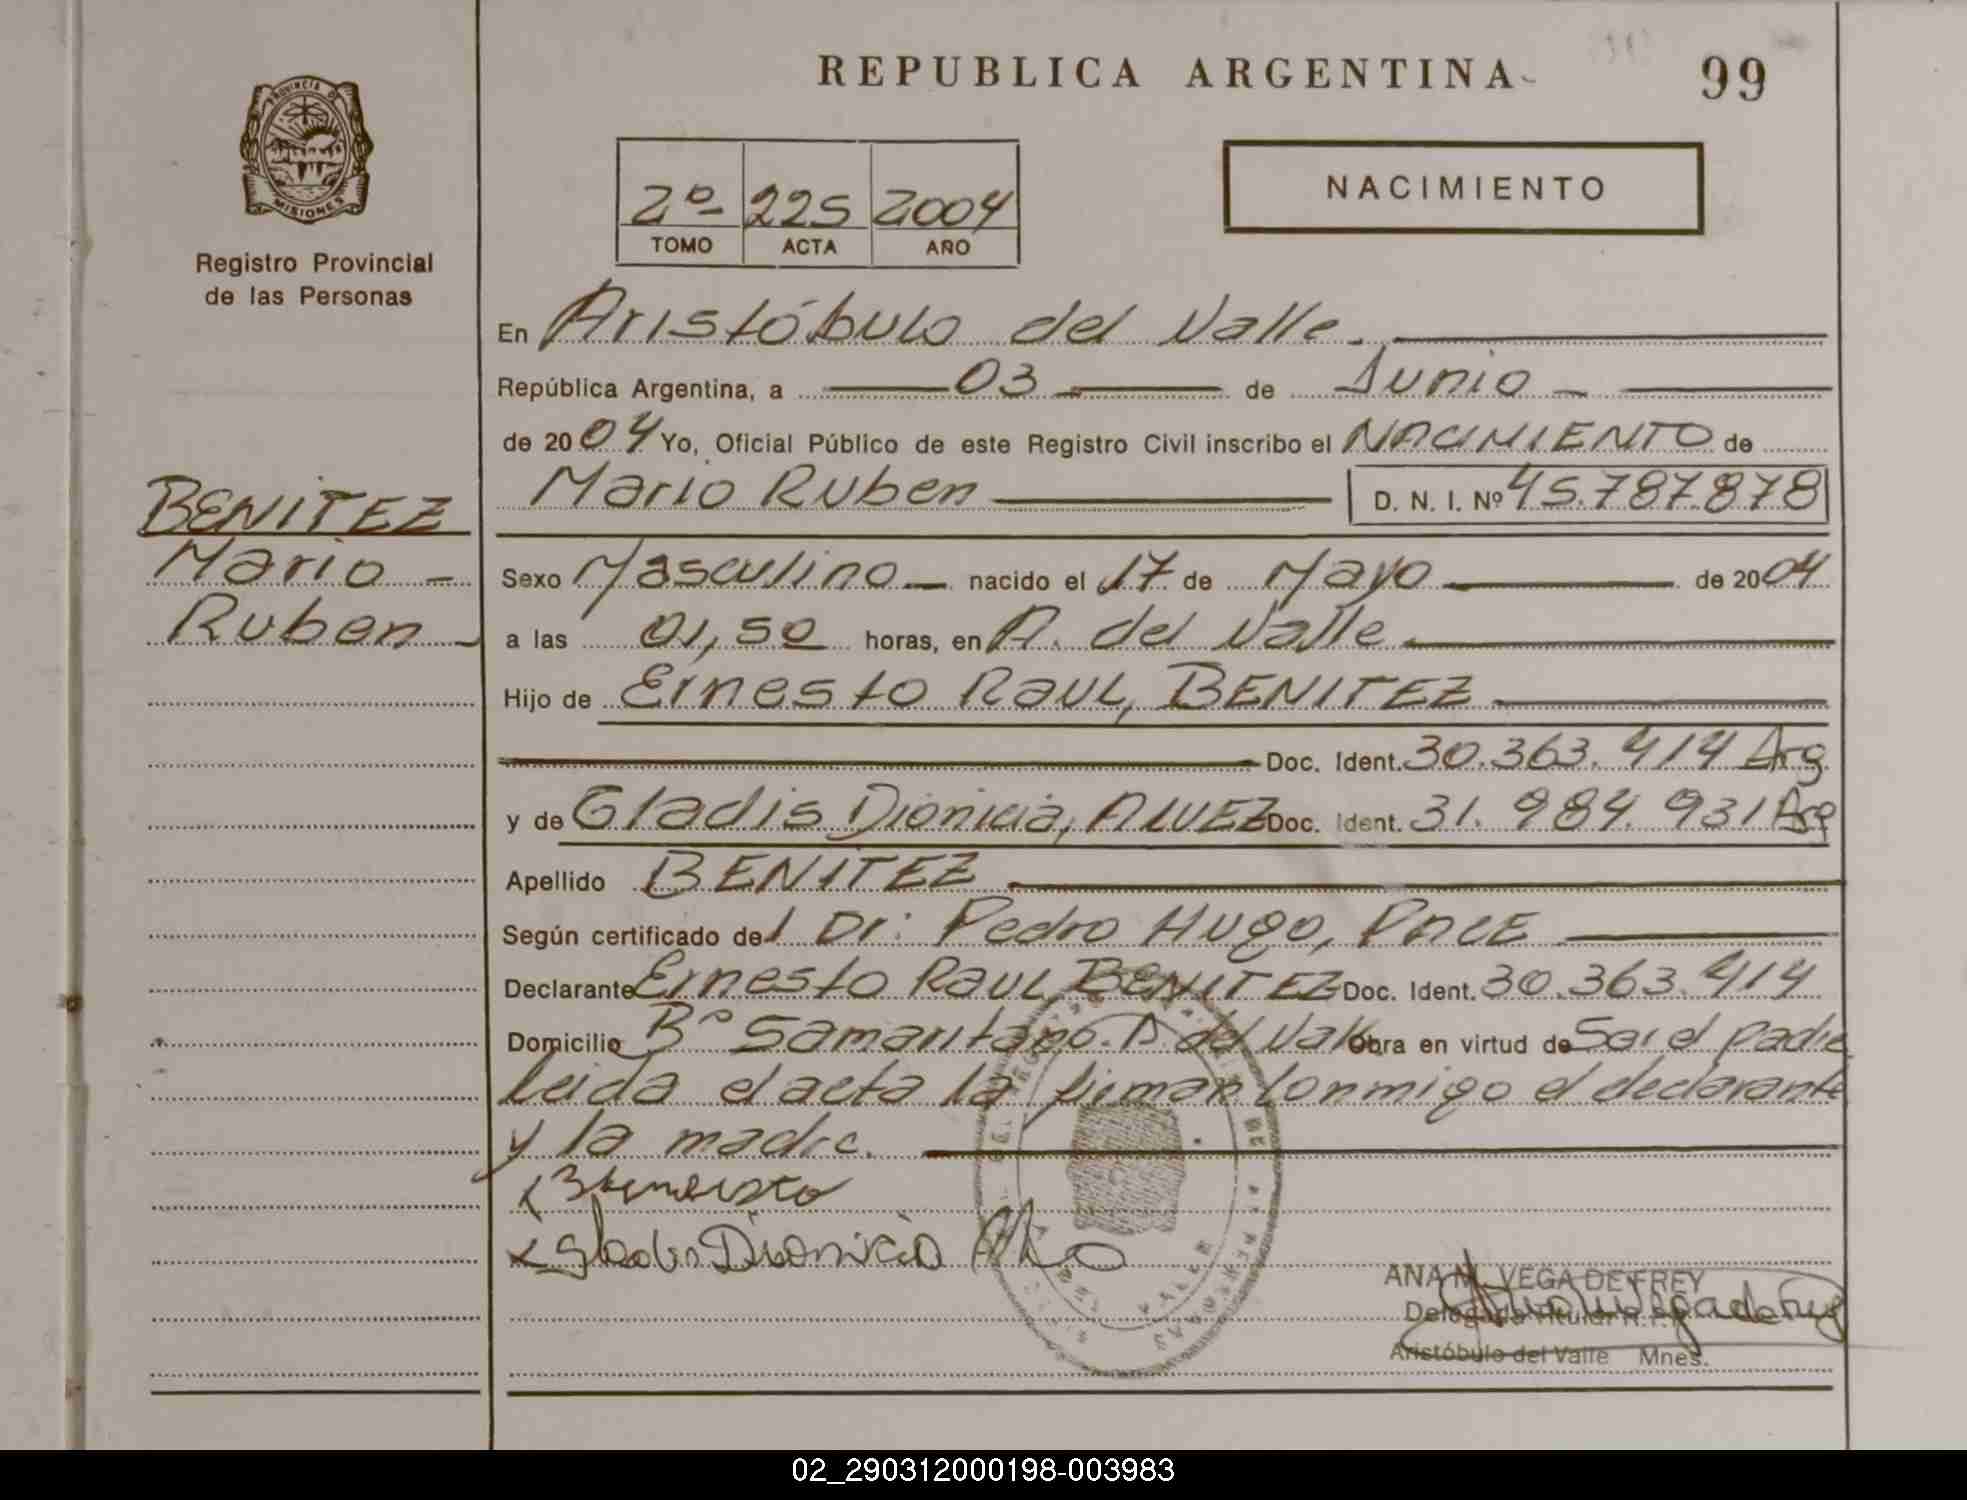 REPUBLICA ARGENTINA
99
PROVINCIA DE
MISIONES
Registro Provincial
de las Personas
2º 225 2004
TOMO ACTA AÑO
NACIMIENTO
En Aristóbulo del Valle.
República Argentina, a 03 de Junio
de 2004 Yo, Oficial Público de este Registro Civil inscribo el NACIMIENTO de
Mario Ruben D. N. I. Nº 45.787.878
BENITEZ
Mario
Ruben
Sexo Masculino nacido el 17 de Mayo de 2004
a las 01,50 horas, en A. del Valle
Hijo de Ernesto Raul, BENITEZ
Doc. Ident. 30.363.414 Arg
y de Gladis Dionicia, ALVEZ Doc. Ident. 31.984.931 Arg
Apellido BENITEZ
Según certificado del Dr: Pedro Hugo, PACE
Declarante Ernesto Raul, BENITEZ Doc. Ident. 30.363.414
Domicilio Bº Samaritano. A del Valle Obra en virtud de Ser el padre
leida el acta la firman conmigo el declarante
y la madre.
Dionicia
ANA M. VEGA DE FREY
Delegada Titular R.P.P.
Aristóbulo del Valle Mnes.
02_290312000198-003983